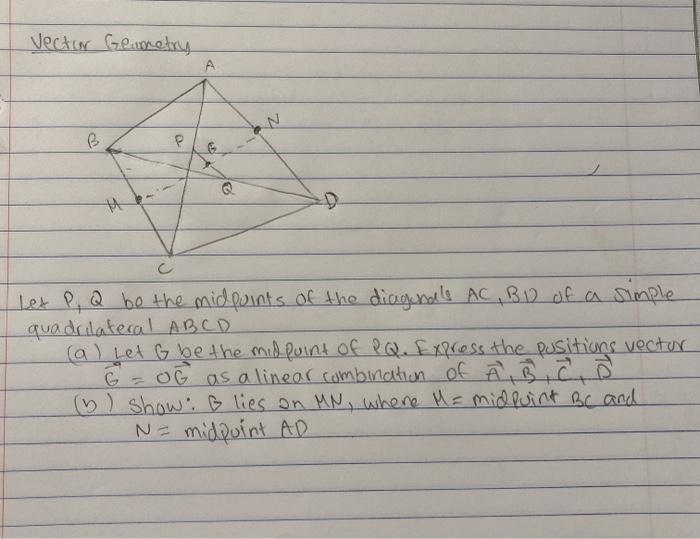 Vector Geometry
A
N
B
P
G
Q
M
D
C
Let P, Q be the midpoints of the diagonals AC, BD of a simple
quadrilateral ABCD
(a) Let G be the midpoint of PQ. Express the positions vector
G⃗ = OG⃗ as a linear combination of A⃗, B⃗, C⃗, D⃗
(b) Show: G lies on MN, where M = midpoint BC and
N = midpoint AD